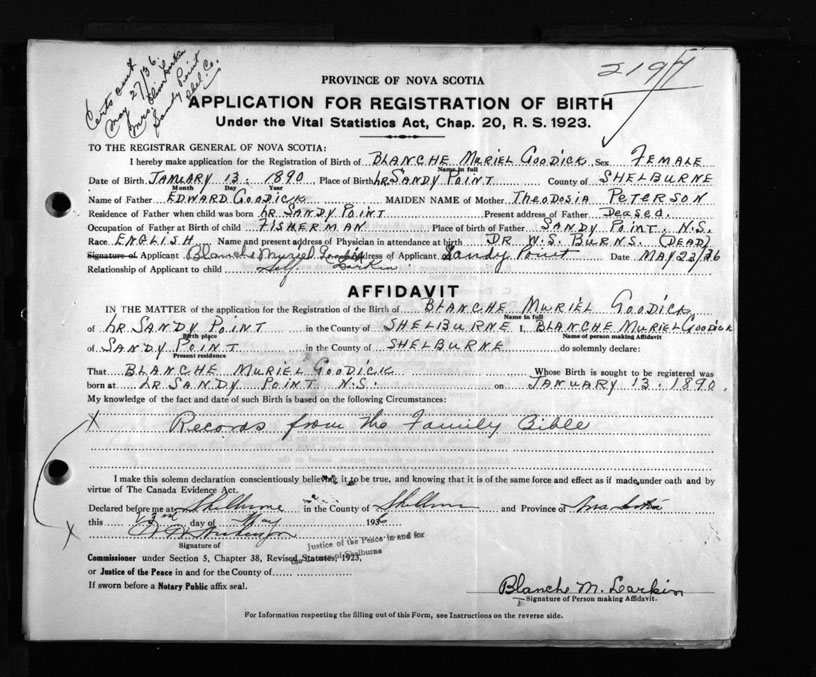 Certs out
May 27/36.
Mrs.
Sandy Point
Shel. Co.
2197
PROVINCE OF NOVA SCOTIA
APPLICATION FOR REGISTRATION OF BIRTH
Under the Vital Statistics Act, Chap. 20, R. S. 1923.
TO THE REGISTRAR GENERAL OF NOVA SCOTIA:
I hereby make application for the Registration of Birth of BLANCHE MURIEL GOODICK Sex FEMALE
Name in full
Date of Birth JANUARY 13. 1890, Place of Birth Lr. SANDY POINT County of SHELBURNE
Month Day Year
Name of Father EDWARD GOODICK MAIDEN NAME of Mother THEODOSIA PETERSON
Residence of Father when child was born Lr. SANDY POINT Present address of Father Deased.
Occupation of Father at Birth of child FISHERMAN Place of birth of Father SANDY POINT, N.S.
Race ENGLISH Name and present address of Physician in attendance at birth DR W.S. BURNS. (DEAD)
Signature of Applicant Blanche Muriel Goodick Address of Applicant Sandy Point Date MAY 23/36
Relationship of Applicant to child Self. Larkin.
AFFIDAVIT
IN THE MATTER of the application for the Registration of the Birth of BLANCHE MURIEL GOODICK
Name in full
of Lr. SANDY POINT in the County of SHELBURNE I, BLANCHE MURIEL GOODICK
Birth place Name of person making Affidavit
of SANDY POINT in the County of SHELBURNE do solemnly declare:
Present residence
That BLANCHE MURIEL GOODICK Whose Birth is sought to be registered was
born at Lr. SANDY POINT N.S. on JANUARY 13. 1890.
My knowledge of the fact and date of such Birth is based on the following Circumstances:
X Records from the Family Bible
I make this solemn declaration conscientiously believing it to be true, and knowing that it is of the same force and effect as if made under oath and by
virtue of The Canada Evidence Act.
Declared before me at Shelburne in the County of Shelburne and Province of Nova Scotia
this 23rd day of May 1936
X
Signature of
Justice of the Peace in and for
the County of Shelburne
Commissioner under Section 5, Chapter 38, Revised Statutes, 1923,
or Justice of the Peace in and for the County of
If sworn before a Notary Public affix seal.
Blanche M. Larkin
Signature of Person making Affidavit.
For Information respecting the filling out of this Form, see Instructions on the reverse side.